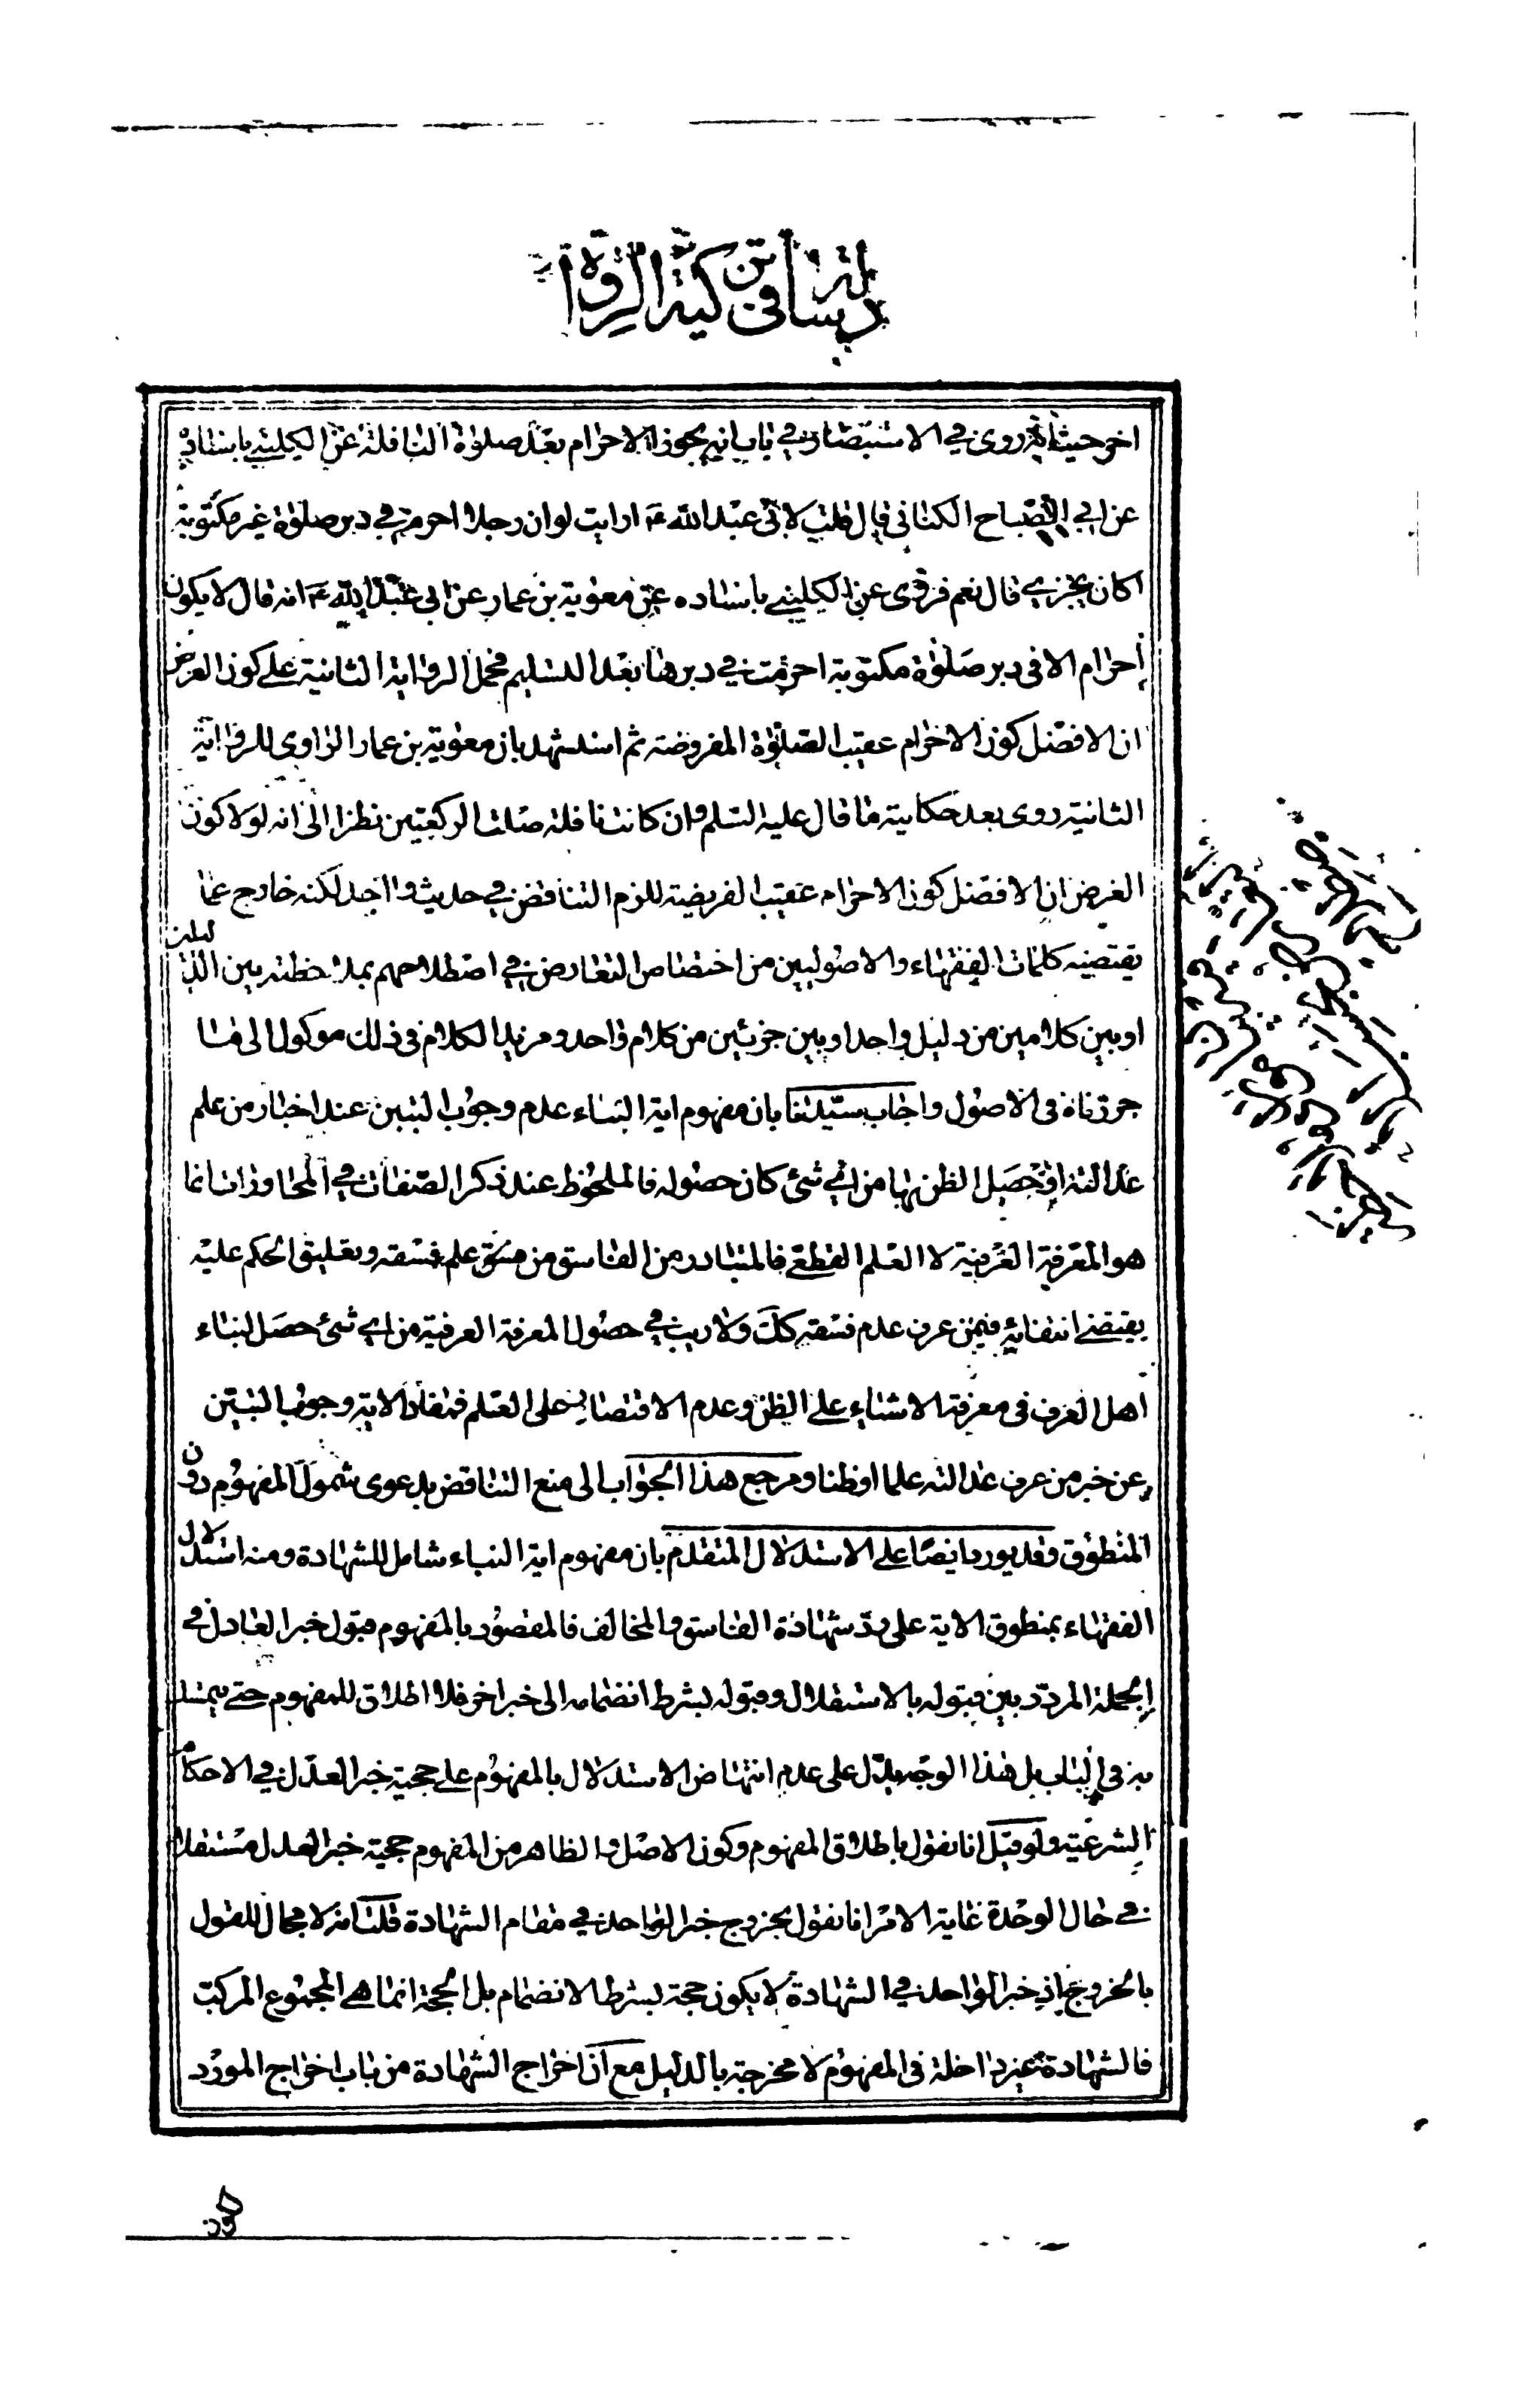 رسالة في تزكية الرواة
اخر حيث انه روى في الاستبصار في باب انه يجوز الاحرام بعد صلوة النافلة عن الكليني باسناده
عن ابي الصباح الكناني قال قلت لابي عبد الله ع ارايت لو ان رجلا احرم في دبر صلوة غير مكتوبة
اكان يجزيه قال نعم فروى عن الكليني باسناده عن معوية بن عمار عن ابي عبد الله ع انه قال لا يكون
احرام الا في دبر صلوة مكتوبة احرمت في دبرها بعد التسليم فحمل الرواية الثانية على كون الغرض
ان الافضل كون الاحرام عقيب الصلوة المفروضة ثم استشهد بان معوية بن عمار الراوي للرواية
الثانية روى بعد حكاية ما قال عليه السلم وان كانت نافلة صليت الركعتين نظرا الى انه لولا كون
الغرض ان الافضل كون الاحرام عقيب الفريضة للزم التناقض في حديث واحد لكنه خارج عما
يقتضيه كلمات الفقهاء والاصوليين من اختصاص التعارض في اصطلاحهم بملاحظته بين الدليلين
او بين كلامين من دليل واحد او بين جزئين من كلام واحد ومزيد الكلام في ذلك موكول الى ما
حررناه في الاصول واجاب سيدنا بان مفهوم اية النباء عدم وجوب التبين عند اخبار من علم
عدالته او حصل الظن بها من اي شئ كان حصوله فالملحوظ عند ذكر الصفات في المحاورات انما
هو المعرفة العرفية لا العلم القطعي فالمتبادر من الفاسق من علم فسقه وتعليق الحكم عليه
يقتضي انتفائه فيمن عرف عدم فسقه كك ولا ريب في حصول المعرفة العرفية من اي شئ حصل لبناء
اهل العرف في معرفة الاشياء على الظن وعدم الاقتصار على العلم فمفاد الاية وجوب التبين
عن خبر من عرف عدالته علما او ظنا ومرجع هذا الجواب الى منع التناقض بدعوى شمول المفهوم دون
المنطوق وقد يورد ايضا على الاستدلال المتقدم بان مفهوم اية النباء شامل للشهادة ومنه استدلال
الفقهاء بمنطوق الاية على رد شهادة الفاسق والمخالف فالمقصود بالمفهوم قبول خبر العادل في
الجملة المردد بين قبوله بالاستقلال وقبوله بشرط انضمامه الى خبر اخر فلا اطلاق للمفهوم حتى يتمسك
به في الباب بل هذا الوجه يدل على عدم انتهاض الاستدلال بالمفهوم على حجية خبر العدل في الاحكام
الشرعية ولو قيل انا نقول باطلاق المفهوم وكون الاصل والظاهر من المفهوم حجية خبر العدل مستقلا
في حال الوحدة غاية الامر انا نقول بخروج خبر الواحد في مقام الشهادة قلنا انه لا مجال للقول
بالخروج اذ خبر الواحد في الشهادة لا يكون حجة بشرط الانضمام بل الحجة انما هي المجموع المركب
فالشهادة غير داخلة في المفهوم لا مخرجة بالدليل مع ان اخراج الشهادة من باب اخراج المورد